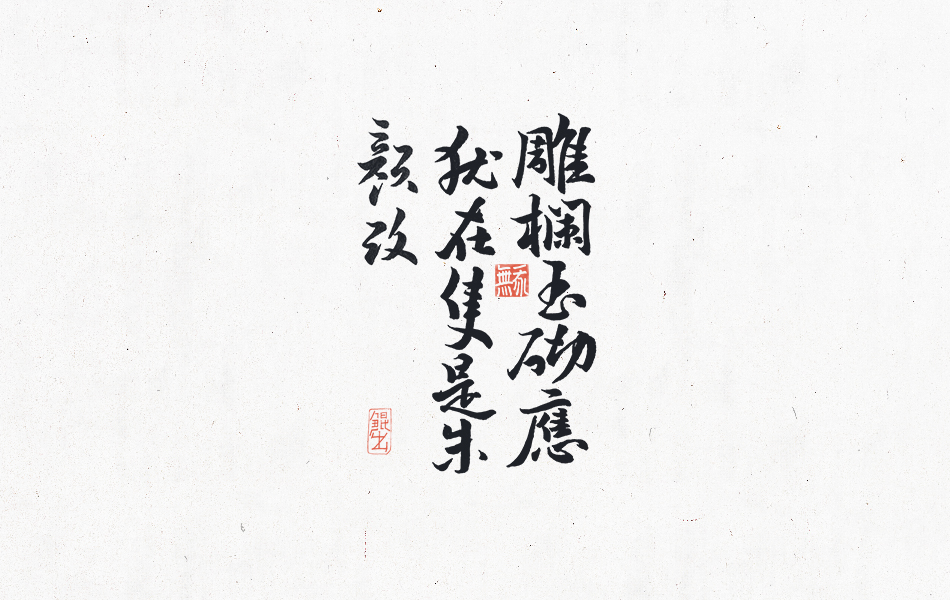 雕欄玉砌應
猶在隻是朱
顏改